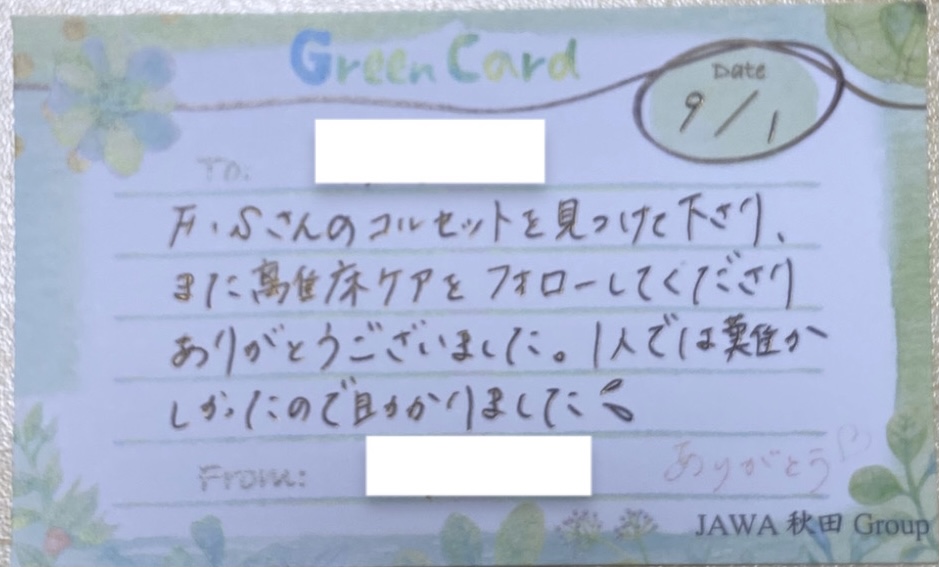 Green Card
Date
9/1
To:
F・Sさんのコルセットを見つけて下さり、
また離床ケアをフォローしてくださり
ありがとうございました。1人では難か
しかったので助かりました
From:
ありがとう
JAWA 秋田 Group